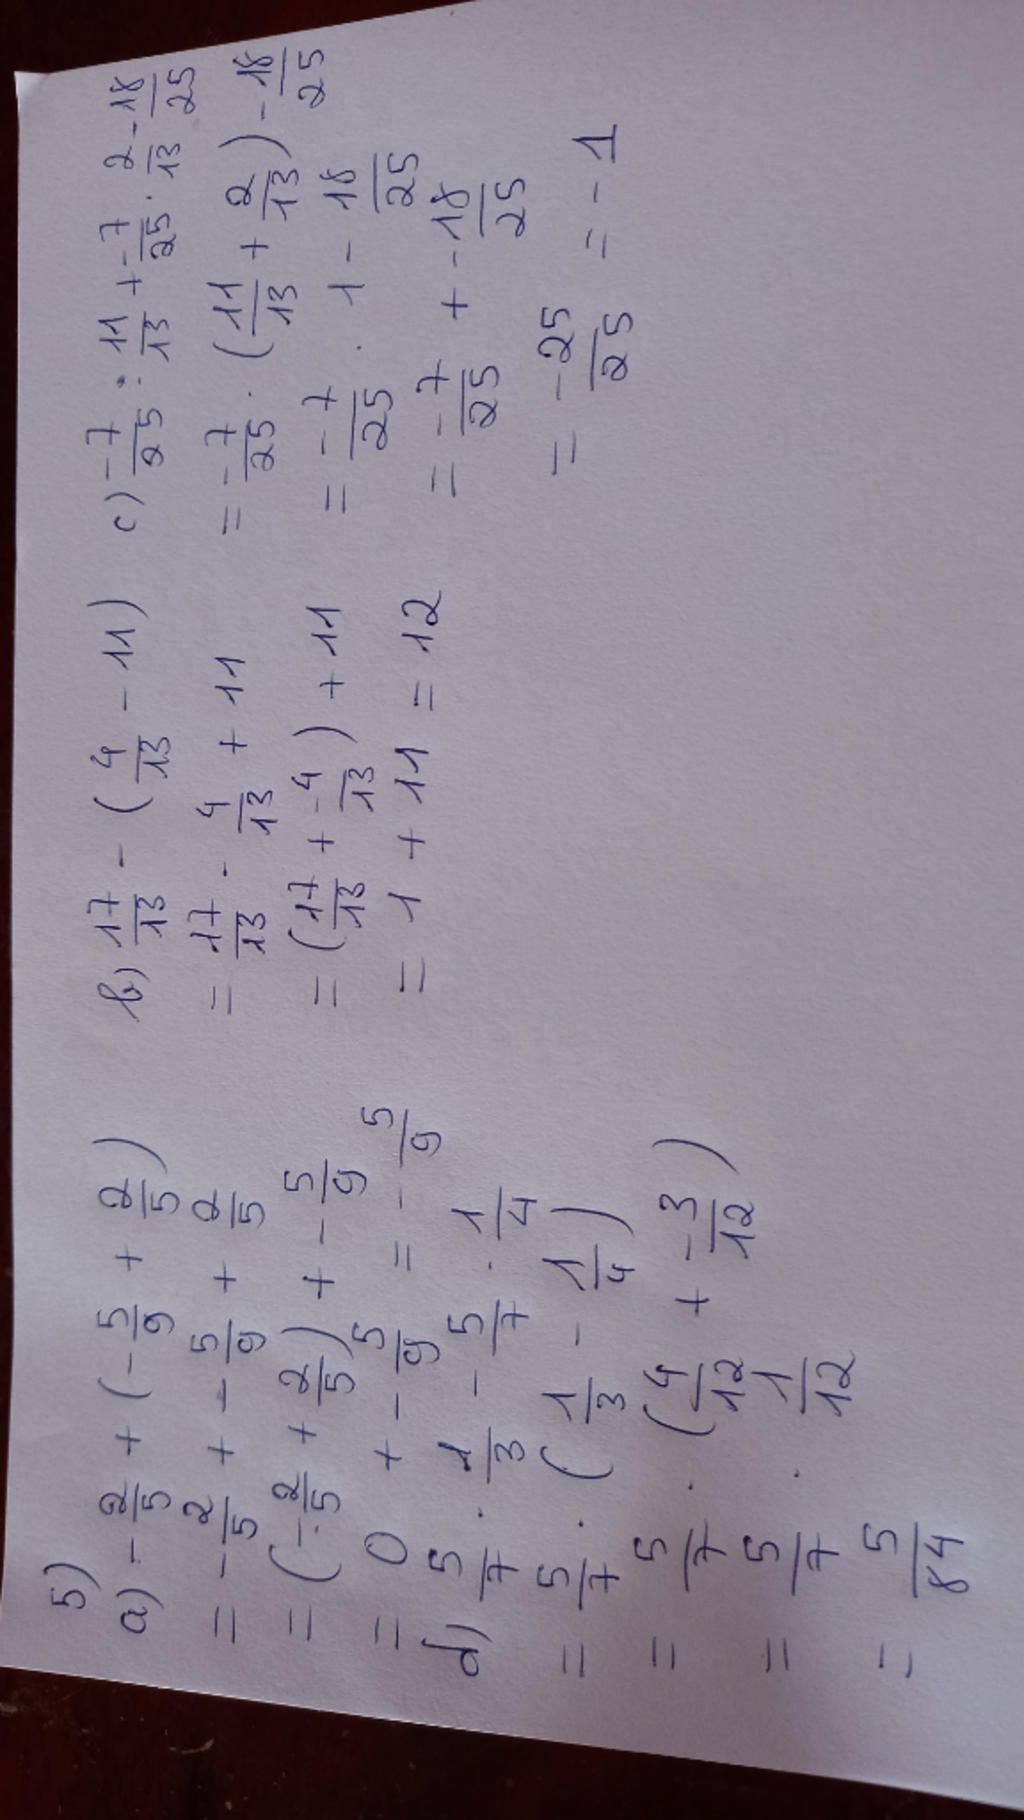 5)
a) -2/5 + (-5/9 + 2/5)
= -2/5 + -5/9 + 2/5
= (-2/5 + 2/5) + -5/9
= 0 + -5/9 = -5/9
b) 17/13 - (4/13 - 11)
= 17/13 - 4/13 + 11
= (17/13 + -4/13) + 11
= 1 + 11 = 12
c) -7/25 . 11/13 + -7/25 . 2/13 - 18/25
= -7/25 . (11/13 + 2/13) - 18/25
= -7/25 . 1 - 18/25
= -7/25 + -18/25
= -25/25 = -1
d) 5/7 . 1/3 - 5/7 . 1/4
= 5/7 . (1/3 - 1/4)
= 5/7 . (4/12 + -3/12)
= 5/7 . 1/12
= 5/84